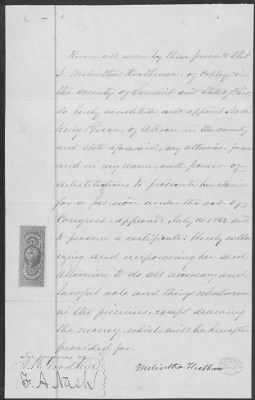 Know all men by these presents that
I Melintha Heathman, of Copley in
the county of Summit and State of Ohio
do hereby constitute and appoint Nash
of Akron in the county
and state aforesaid, my attorneys for me
and in my name, with power of
substitution to prosecute her claim
for a pension under the act of
Congress approved July 14 1862 and
to procure a certificate hereby author
izing and empowering her said
attorneys to do all necessary and
lawful acts and things whatsoever
in the premises, except drawing
the money which will be hereafter
provided for.
In presence of
F. A. Nash
Melintha Heathman